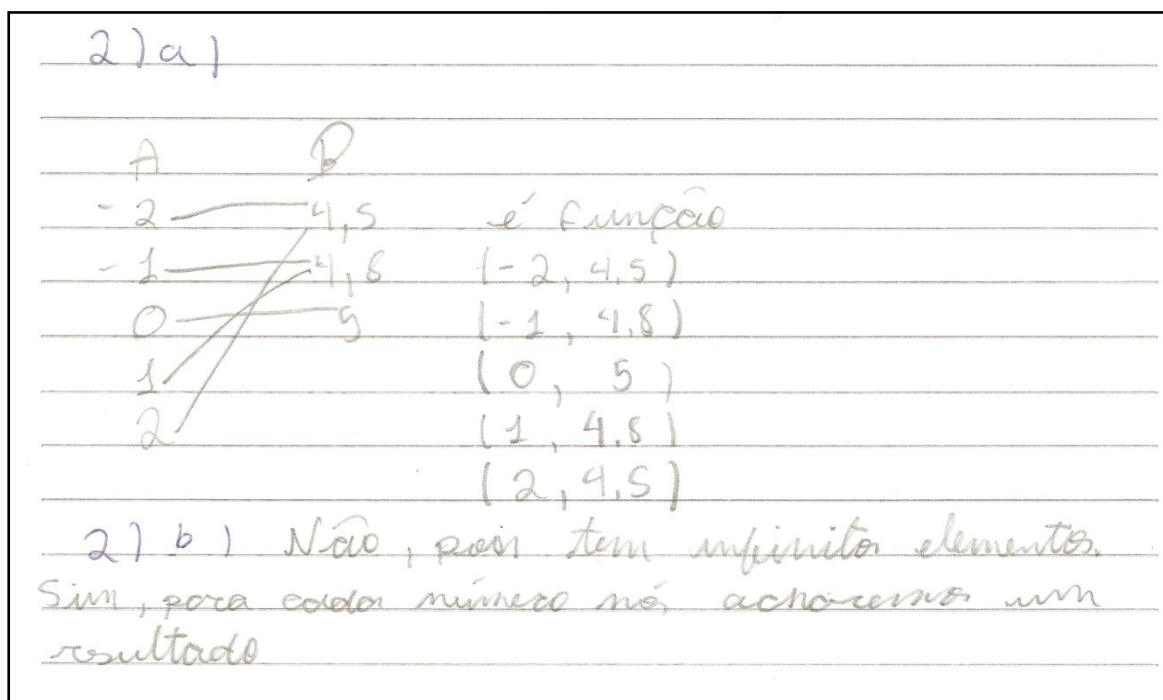 2) a)
A B
-2 4,5 é função
-1 4,8 (-2, 4,5)
0 5 (-1, 4,8)
1 (0, 5)
2 (1, 4,8)
(2, 4,5)
2) b) Não, pois tem infinitos elementos.
Sim, para cada número nós acharemos um
resultado